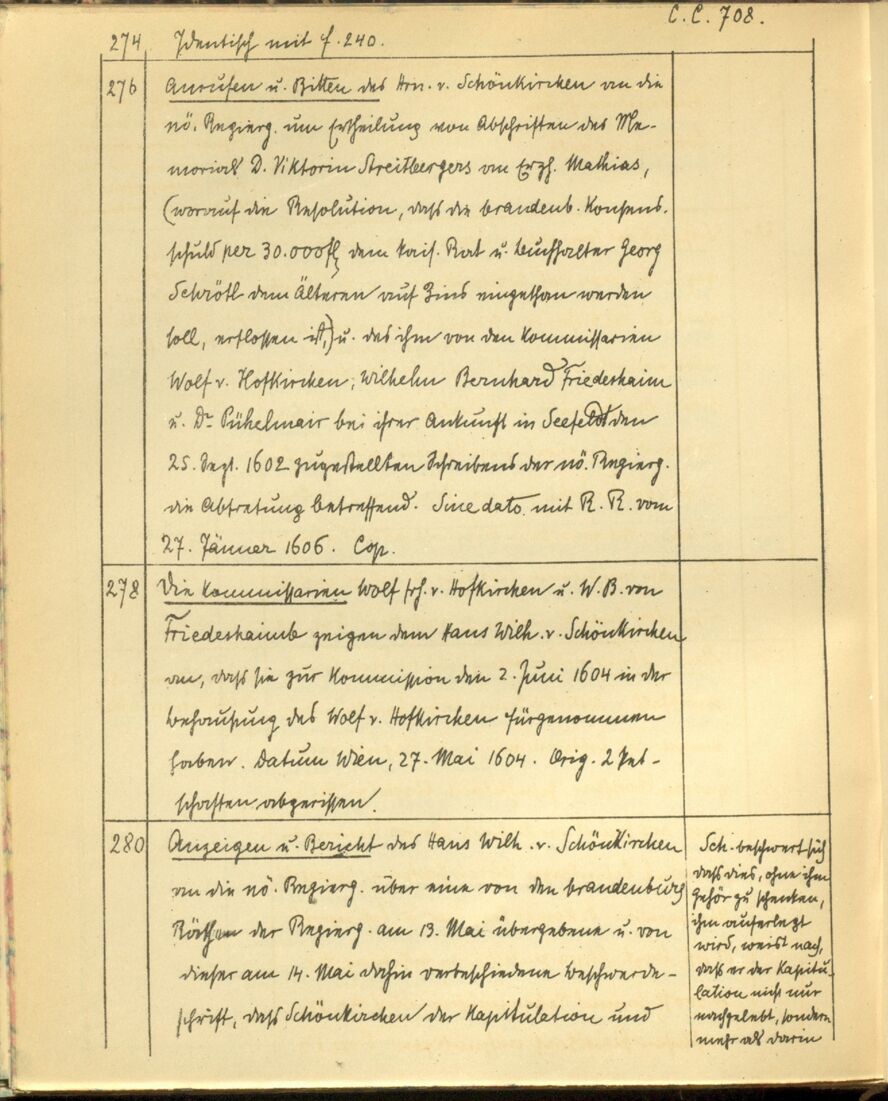 C. C. 708.
274 Identisch mit f. 240.
276 Anrufen u. Bitten des Hrn. v. Schönkirchen an die
nö. Regierg. um Ertheilung von Abschriften des Me-
morials D. Viktorin Streitbergers an Erzh. Mathias,
(worauf die Resolution, dass die brandenb. Konsens-
schuld per 30.000 fl dem kais. Rat u. Buchhalter Georg
Schrötl dem Älteren auf Zins eingethan werden
soll, erflossen ist,) u. des ihm von den Kommissarien
Wolf v. Hofkirchen, Wilhelm Bernhard Friedeshaim
u. Dr. Pühelmair bei ihrer Ankunft in Seefeld den
25. Sept. 1602 zugestellten Schreibens der nö. Regierg.
die Abtretung betreffend. Sine dato mit R. R. vom
27. Jänner 1606. Cop.
278 Die Kommissarien Wolf frh. v. Hofkirchen u. W. B. von
Friedeshaimb zeigen dem Hans Wilh. v. Schönkirchen
an, dass sie zur Kommission den 2. Juni 1604 in der
Behausung des Wolf v. Hofkirchen fürgenommen
haben. Datum Wien, 27. Mai 1604. Orig. 2 Pet-
schaften abgerissen.
280 Anzeigen u. Bericht des Hans Wilh. v. Schönkirchen
an die nö. Regierg. über eine von den brandenburg
Räthen der Regierg. am 13. Mai übergebene u. von
dieser am 14. Mai dahin verbeschiedene Beschwerde-
schrift, dass Schönkirchen der Kapitulation und
Sch. beschwert sich
dass dies, ohne ihm
Gehör zu schenken,
ihm auferlegt
wird, weist nach,
dass er der Kapitu-
lation nicht nur
nachgelebt, sondern
mehr als darin